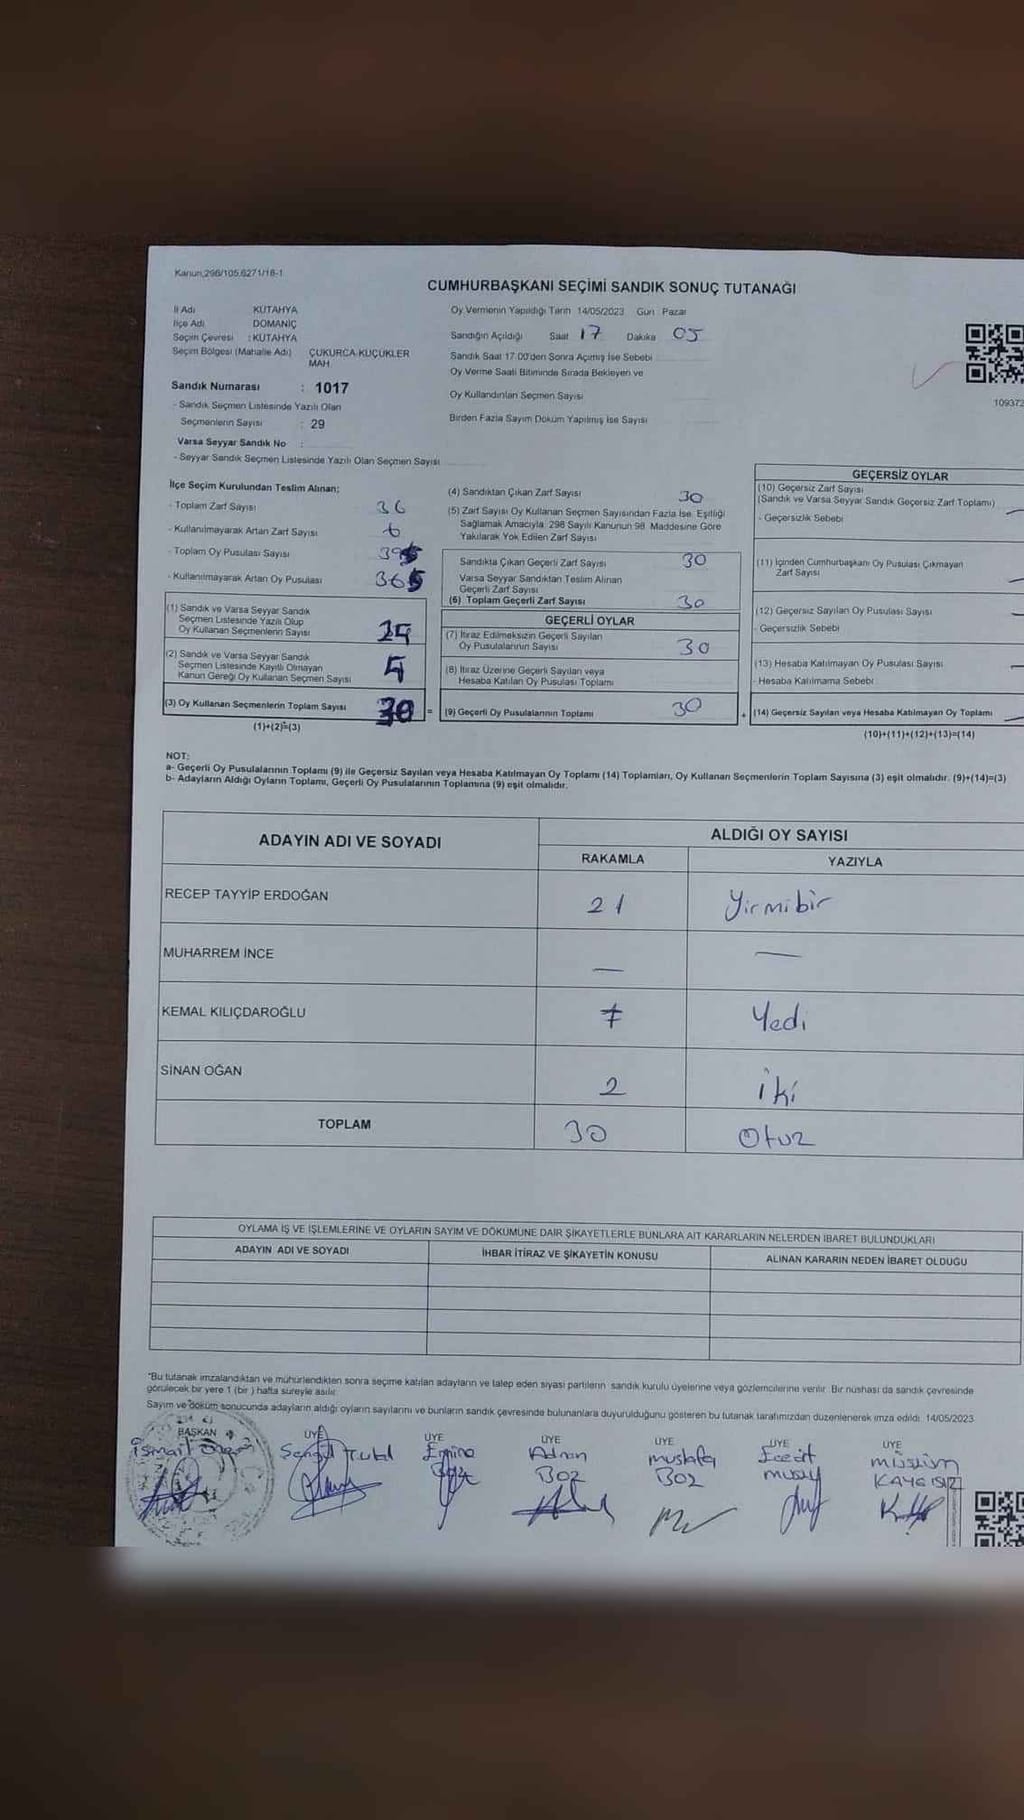 Kanun,298/105,6271/18-1
CUMHURBAŞKANI SEÇİMİ SANDIK SONUÇ TUTANAĞI
İl Adı KÜTAHYA
İlçe Adı DOMANİÇ
Seçim Çevresi : KÜTAHYA
Seçim Bölgesi (Mahalle Adı) ÇUKURCA-KÜÇÜKLER MAH.
Sandık Numarası : 1017
- Sandık Seçmen Listesinde Yazılı Olan
Seçmenlerin Sayısı : 29
Varsa Seyyar Sandık No :
- Seyyar Sandık Seçmen Listesinde Yazılı Olan Seçmen Sayısı
Oy Vermenin Yapıldığı Tarih 14/05/2023 Gün Pazar
Sandığın Açıldığı Saat 17 Dakika 05
Sandık Saat 17.00'den Sonra Açılmış İse Sebebi
Oy Verme Saati Bitiminde Sırada Bekleyen ve
Oy Kullandırılan Seçmen Sayısı
Birden Fazla Sayım Döküm Yapılmış İse Sayısı
109372
İlçe Seçim Kurulundan Teslim Alınan;
- Toplam Zarf Sayısı 36
- Kullanılmayarak Artan Zarf Sayısı 6
- Toplam Oy Pusulası Sayısı
- Kullanılmayarak Artan Oy Pusulası
(1) Sandık ve Varsa Seyyar Sandık
Seçmen Listesinde Yazılı Olup
Oy Kullanan Seçmenlerin Sayısı
(2) Sandık ve Varsa Seyyar Sandık
Seçmen Listesinde Kayıtlı Olmayan
Kanun Gereği Oy Kullanan Seçmen Sayısı
(3) Oy Kullanan Seçmenlerin Toplam Sayısı 30
(1)+(2)=(3)
(4) Sandıktan Çıkan Zarf Sayısı 30
(5) Zarf Sayısı Oy Kullanan Seçmen Sayısından Fazla İse, Eşitliği
Sağlamak Amacıyla, 298 Sayılı Kanunun 98. Maddesine Göre
Yakılarak Yok Edilen Zarf Sayısı
Sandıkta Çıkan Geçerli Zarf Sayısı 30
Varsa Seyyar Sandıktan Teslim Alınan
Geçerli Zarf Sayısı
(6) Toplam Geçerli Zarf Sayısı 30
GEÇERLİ OYLAR
(7) İtiraz Edilmeksizin Geçerli Sayılan
Oy Pusulalarının Sayısı 30
(8) İtiraz Üzerine Geçerli Sayılan veya
Hesaba Katılan Oy Pusulası Toplamı
= (9) Geçerli Oy Pusulalarının Toplamı 30
GEÇERSİZ OYLAR
(10) Geçersiz Zarf Sayısı
(Sandık ve Varsa Seyyar Sandık Geçersiz Zarf Toplamı)
- Geçersizlik Sebebi
(11) İçinden Cumhurbaşkanı Oy Pusulası Çıkmayan
Zarf Sayısı
(12) Geçersiz Sayılan Oy Pusulası Sayısı
- Geçersizlik Sebebi
(13) Hesaba Katılmayan Oy Pusulası Sayısı
- Hesaba Katılmama Sebebi
+ (14) Geçersiz Sayılan veya Hesaba Katılmayan Oy Toplamı
(10)+(11)+(12)+(13)=(14)
NOT:
a- Geçerli Oy Pusulalarının Toplamı (9) ile Geçersiz Sayılan veya Hesaba Katılmayan Oy Toplamı (14) Toplamları, Oy Kullanan Seçmenlerin Toplam Sayısına (3) eşit olmalıdır. (9)+(14)=(3)
b- Adayların Aldığı Oyların Toplamı, Geçerli Oy Pusulalarının Toplamına (9) eşit olmalıdır.
ADAYIN ADI VE SOYADI
ALDIĞI OY SAYISI
RAKAMLA YAZIYLA
RECEP TAYYİP ERDOĞAN 21 Yirmibir
MUHARREM İNCE — —
KEMAL KILIÇDAROĞLU 7 Yedi
SİNAN OĞAN 2 iki
TOPLAM 30 Otuz
OYLAMA İŞ VE İŞLEMLERİNE VE OYLARIN SAYIM VE DÖKÜMÜNE DAİR ŞİKAYETLERLE BUNLARA AİT KARARLARIN NELERDEN İBARET BULUNDUKLARI
ADAYIN ADI VE SOYADI İHBAR İTİRAZ VE ŞİKAYETİN KONUSU ALINAN KARARIN NEDEN İBARET OLDUĞU
"Bu tutanak imzalandıktan ve mühürlendikten sonra seçime katılan adayların ve talep eden siyasi partilerin sandık kurulu üyelerine veya gözlemcilerine verilir. Bir nüshası da sandık çevresinde
görülecek bir yere 1 (bir) hafta süreyle asılır.
Sayım ve döküm sonucunda adayların aldığı oyların sayılarını ve bunların sandık çevresinde bulunanlara duyurulduğunu gösteren bu tutanak tarafımızdan düzenlenerek imza edildi. 14/05/2023
BAŞKAN ÜYE ÜYE ÜYE ÜYE ÜYE ÜYE
İsmail Emine Adnan mustafa müslüm
Boz BOZ BOZ KAYGISIZ